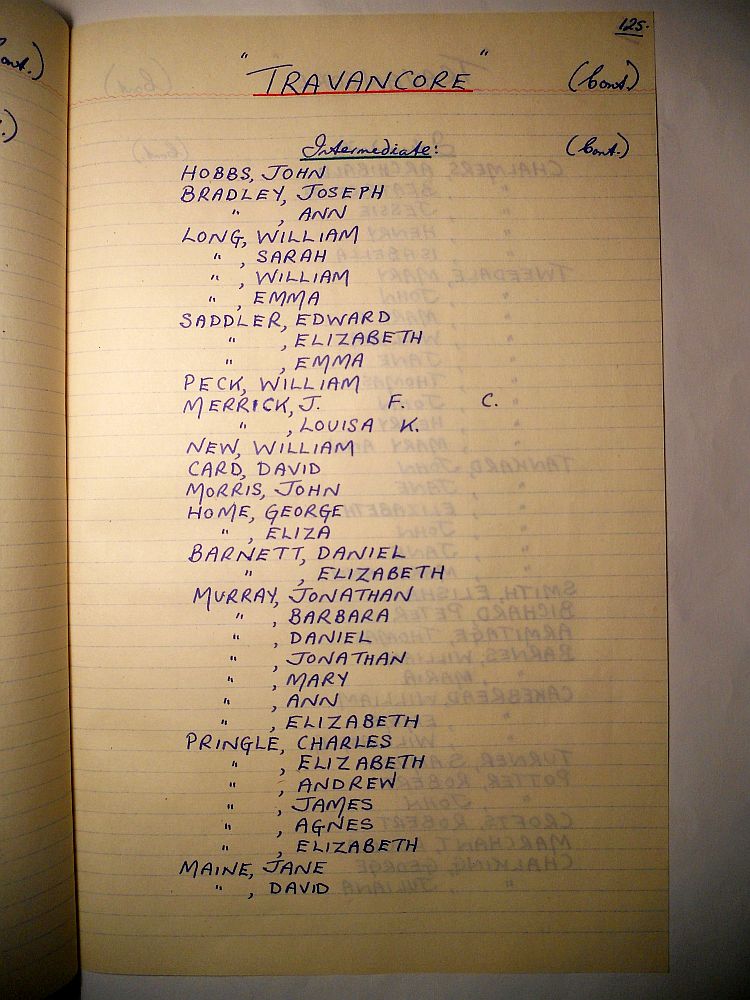 125.
"TRAVANCORE" (Cont.)
Intermediate: (Cont.)
HOBBS, JOHN
BRADLEY, JOSEPH
" , ANN
LONG, WILLIAM
" , SARAH
" , WILLIAM
" , EMMA
SADDLER, EDWARD
" , ELIZABETH
" , EMMA
PECK, WILLIAM
MERRICK, J. F. C.
" , LOUISA K.
NEW, WILLIAM
CARD, DAVID
MORRIS, JOHN
HOME, GEORGE
" , ELIZA
BARNETT, DANIEL
" , ELIZABETH
MURRAY, JONATHAN
" , BARBARA
" , DANIEL
" , JONATHAN
" , MARY
" , ANN
" , ELIZABETH
PRINGLE, CHARLES
" , ELIZABETH
" , ANDREW
" , JAMES
" , AGNES
" , ELIZABETH
MAINE, JANE
" , DAVID